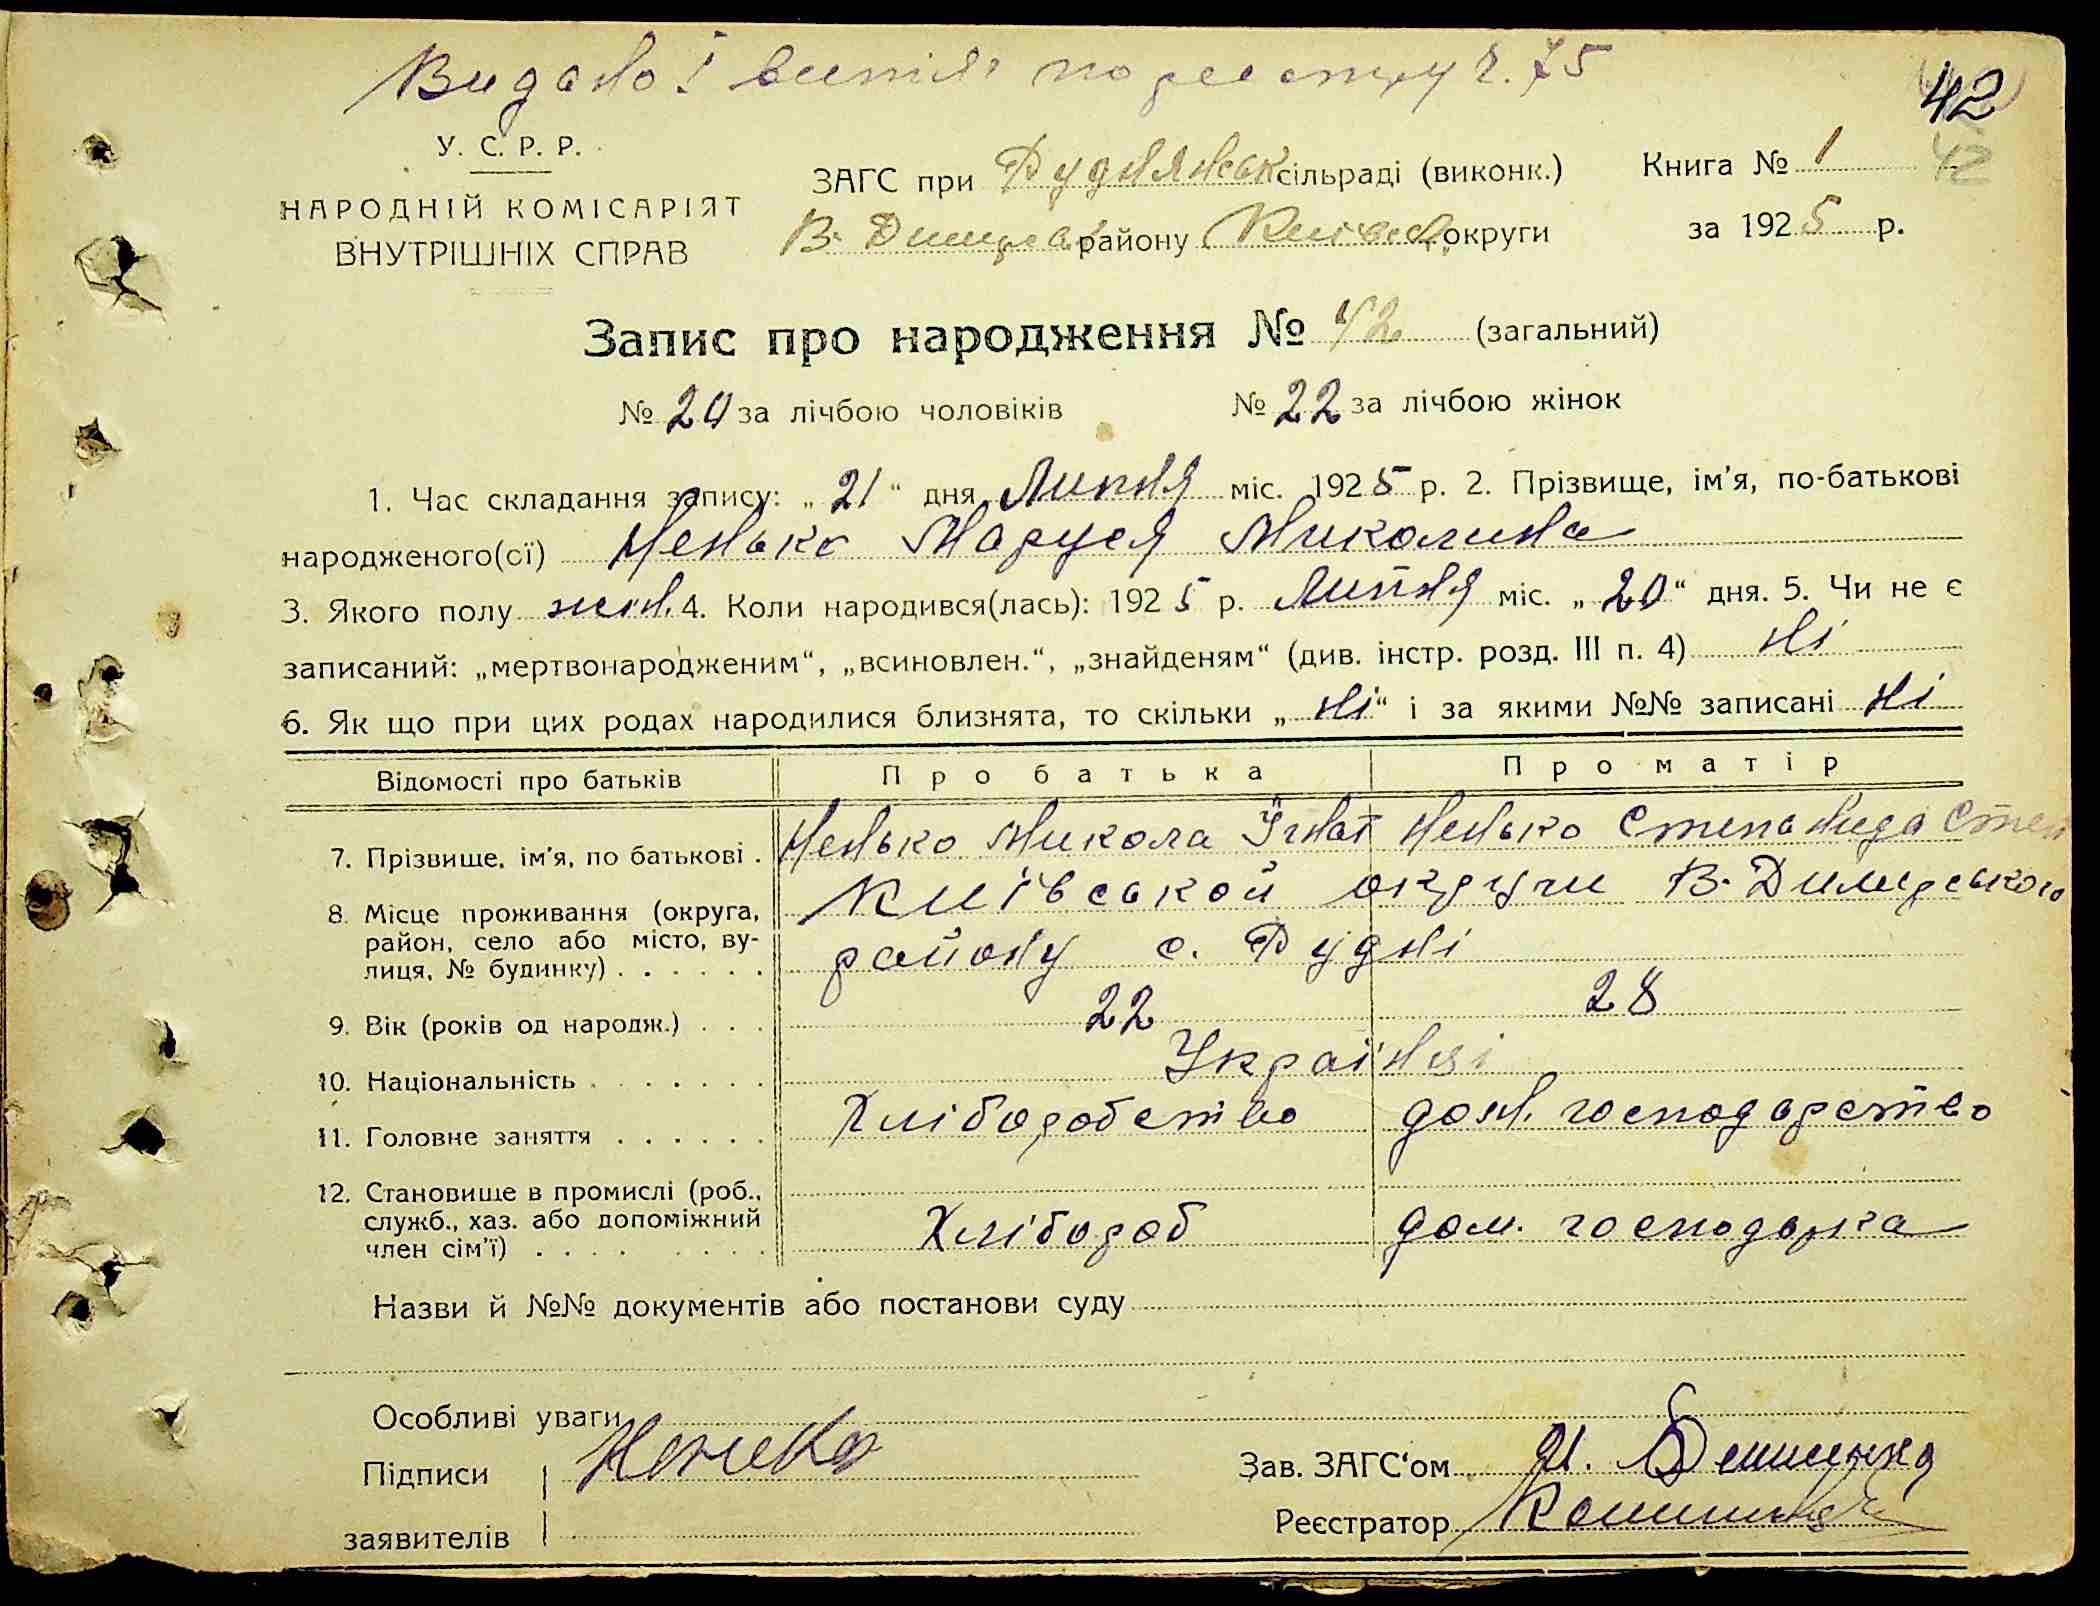 Видано витяг по реєстру ч. 75
42
У. С. Р. Р.
НАРОДНІЙ КОМІСАРІЯТ
ВНУТРІШНІХ СПРАВ
ЗАГС при Руднянськ сільраді (виконк.)
В-Димерс району Київськ округи
Книга № 1
42
за 1925 р.
Запис про народження № 42 (загальний)
№ 20 за лічбою чоловіків № 22 за лічбою жінок
1. Час складання запису: „21“ дня Липня міс. 1925 р. 2. Прізвище, ім'я, по-батькові
народженого(сї) Ненько Маруся Миколина
3. Якого полу жін. 4. Коли народився(лась): 1925 р. Липня міс. „20“ дня. 5. Чи не є
записаний: „мертвонародженим“, „всиновлен.“, „знайденям“ (див. інстр. розд. III п. 4) Ні
6. Як що при цих родах народилися близнята, то скільки „Ні“ і за якими №№ записані Ні
Відомості про батьків Про батька Про матір
7. Прізвище, ім'я, по батькові . Ненько Микола Ігнат Ненько Степанида Степ
8. Місце проживання (округа, район, село або місто, ву-
лиця, № будинку) . . . . . . Київської округи В-Димерського
району с. Рудні
9. Вік (років од народж.) . . . 22 28
10. Національність . . . . . . . Українці
11. Головне заняття . . . . . . Хліборобство дом. господарство
12. Становище в промислі (роб.,
служб., хаз. або допоміжний
член сім'ї) . . . . . . . . Хлібороб дом. господарка
Назви й №№ документів або постанови суду
Особливі уваги
Підписи Ненько
заявителів
Зав. ЗАГС'ом
Реєстратор